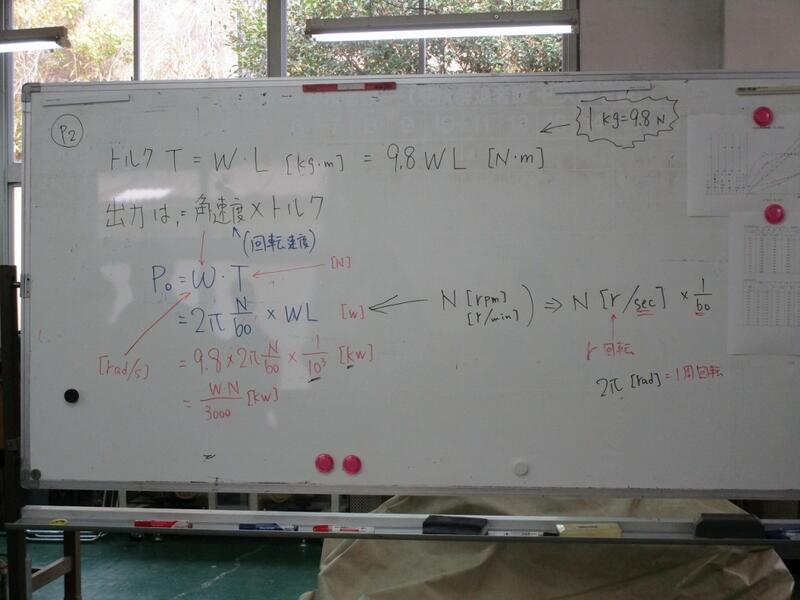 P2
1 kg=9.8 N
トルク T = W・L [kg・m] = 9.8 W L [N・m]
出力は,=角速度×トルク
(回転速度)
P₀=W・T
[N]
=2π N/60 × WL [w]
N [rpm] [r/min] ) ⇒ N [r/sec] × 1/60
[rad/s]
= 9.8×2π N/60 × 1/10³ [kw]
r 回転
= W・N/3000 [kw]
2π [rad] = 1周回転